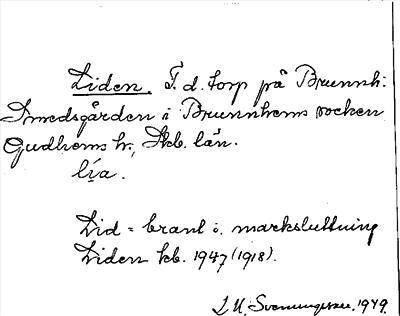 Liden. F. d. torp på Brunnh:
Smedsgården i Brunnhems socken
Gudhems hr., Skb. län.
lía.
Lid = brant i. marksluttning
Liden kb. 1947 (1918).
D. U. Svenungsson. 1949.